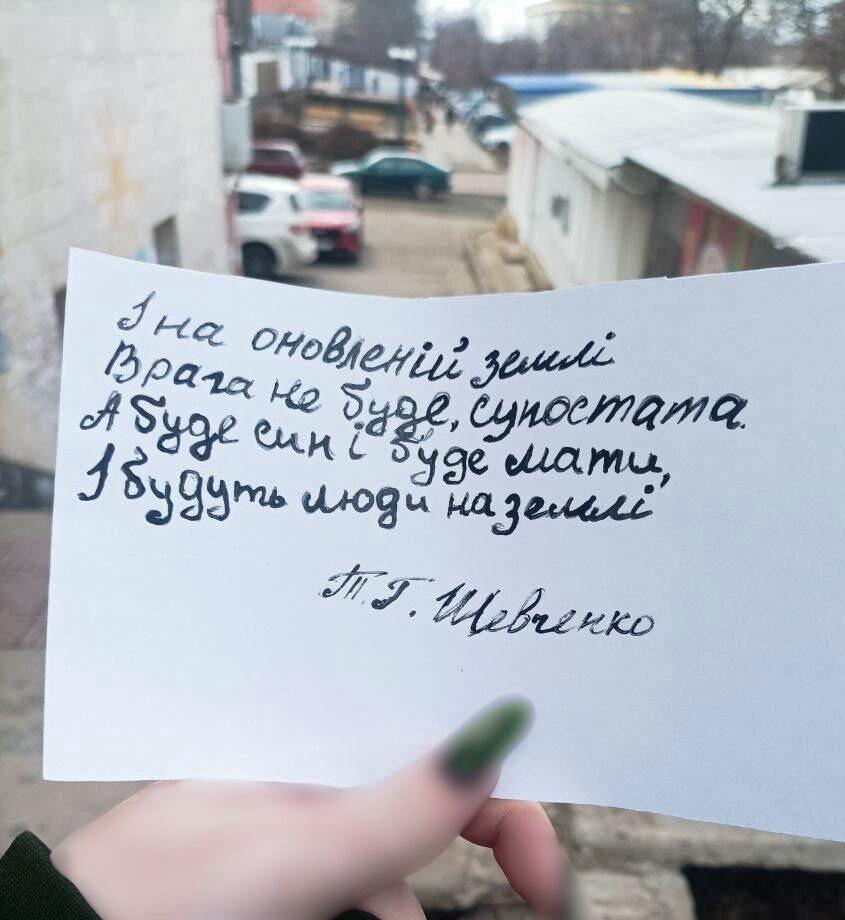 І на оновленій землі
Врага не буде, супостата.
А буде син і буде мати,
І будуть люди на землі
Т.Г. Шевченко